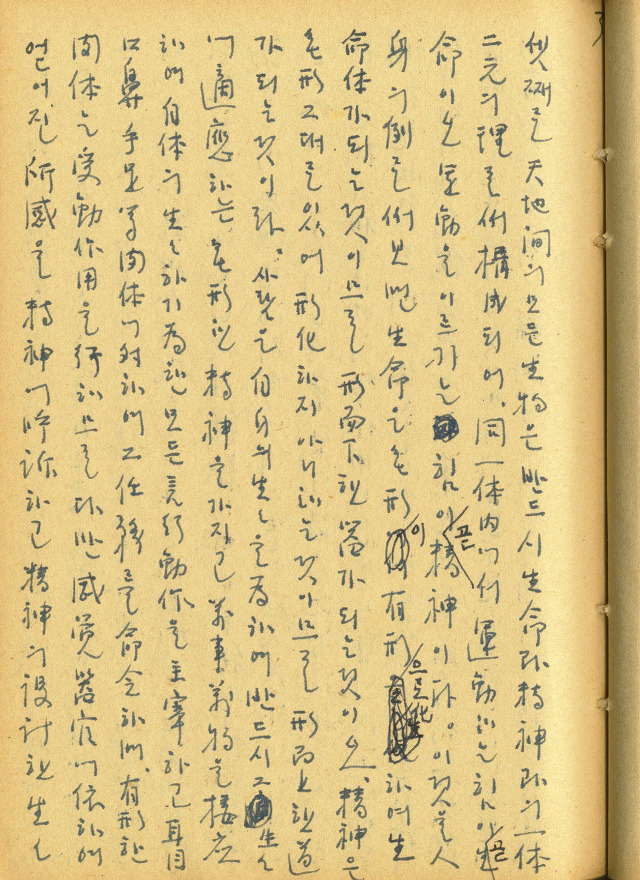 셋째로 天地間의 모든 生物은 반드시 生命과 精神과의 一体
二元의 理로서 構成되어, 同一体內에서 運動하는 힘이 곧 生
命이오 運動을 이르키는 힘이 곧 精神이다. 이것을 人
身의 例로서 보면 生命은 無形이 有形으로 化하여 生
命体가 되는 것이므로 形而下한 器가 되는 것이오, 精神은
無形 그대로 있어 形化하지 아니하는 것이므로 形而上한 道
가 되는 것이라. 사람은 自身의 生々을 爲하여 반드시 그 生々
에 適應하는 無形한 精神을 가지고 萬事萬物을 接应
하며 自体의 生々하기 爲한 모든 言行動作을 主宰하고 耳目
口鼻手足等 肉体에 対하여 그 任務를 命令하며, 有形한
肉体는 受動作用을 行하므로 다만 感覚器官에 依하여
얻어진 所感을 精神에 呼訴하고 精神의 設計한 生々